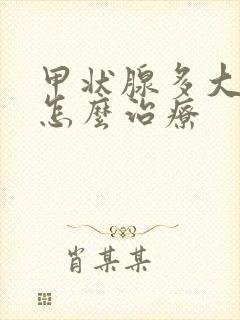 甲状腺多大
怎麼治療
肖某某